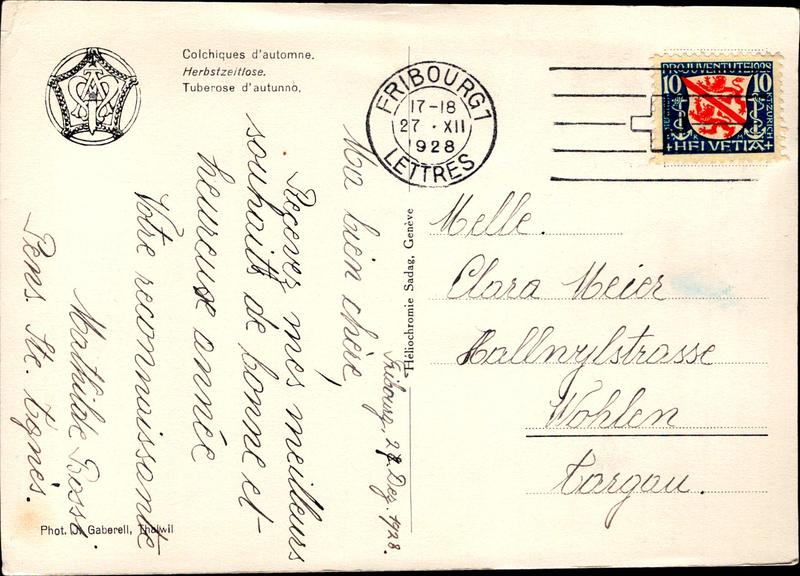 Colchiques d'automne.
Herbstzeitlose.
Tuberose d'autunno.
FRIBOURG 1
17-18
27·XII
1928
LETTRES
PRO JUVENTUTE 1928
10 10
HELVETIA
Fribourg, 27. Dez. 1928.
Ma bien chère,
Recevez mes meilleurs
souhaits de bonne et
heureuse année
Votre reconnaissante
Mathilde Rossi.
Pens. Ste. Agnès.
Héliochromie Sadag, Genève
Melle.
Clara Meier
Hallwylstrasse
Wohlen
Aargau.
Phot. O. Gaberell, Thalwil